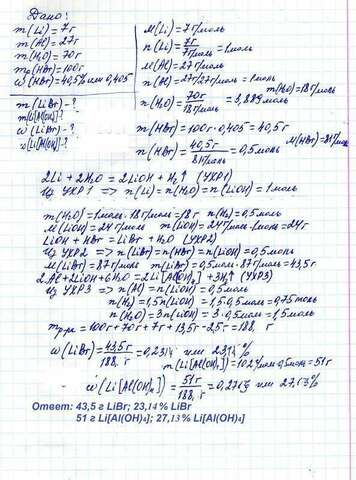 Дано:
m(Li) = 7г
m(Al) = 27г
m(H₂O) = 70г
m(HBr) = 100г
ω(HBr) = 40,5% или 0,405
m(LiBr) - ?
m(Li[Al(OH)₄] - ?
ω(LiBr) - ?
ω(Li[Al(OH)₄] - ?
M(Li) = 7г/моль
n(Li) = 7г/7г/моль = 1моль
M(Al) = 27г/моль
n(Al) = 27г/27г/моль = 1моль
m(H₂O) = 18г/моль
n(H₂O) = 70г/18г/моль = 3,889моль
m(HBr) = 100г·0,405 = 40,5г
M(HBr) = 81г/моль
n(HBr) = 40,5г/81г/моль = 0,5моль
2Li + 2H₂O = 2LiOH + H₂↑ (УХР1)
Из УХР1 => n(Li) = n(H₂O) = n(LiOH) = 1моль
m(H₂O) = 1моль·18г/моль = 18г n(H₂) = 0,5моль
M(LiOH) = 24г/моль m(LiOH) = 24г/моль·1моль = 24г
LiOH + HBr = LiBr + H₂O (УХР2)
Из УХР2 => n(LiBr) = n(HBr) = n(LiOH) = 0,5моль
M(LiBr) = 87г/моль m(LiBr) = 0,5моль·87г/моль = 43,5г
2Al + 2LiOH + 6H₂O = 2Li[Al(OH)₄] + 3H₂↑ (УХР3)
Из УХР3 => n(Al) = n(LiOH) = 0,5моль
n(H₂) = 1,5n(LiOH) = 1,5·0,5моль = 0,75моль
n(H₂O) = 3n(LiOH) = 3·0,5моль = 1,5моль
mр-ра = 100г + 70г + 7г + 13,5г - 2,5г = 188, г
ω(LiBr) = 43,5г/188, г = 0,2314 или 23,14%
m(Li[Al(OH)₄]) = 102г/моль·0,5моль = 51г
ω(Li[Al(OH)₄]) = 51г/188, г = 0,2713 или 27,13%
Ответ: 43,5 г LiBr; 23,14% LiBr
51 г Li[Al(OH)₄]; 27,13% Li[Al(OH)₄]